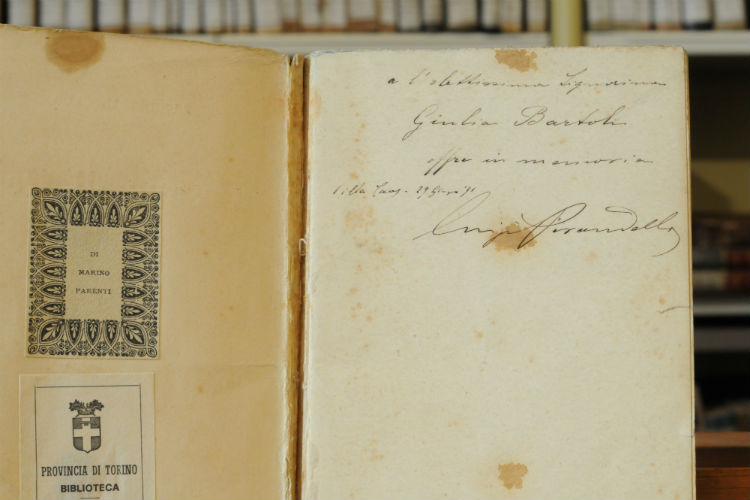 DI
MARINO
PARENTI
PROVINCIA DI TORINO
BIBLIOTECA
a l'elettissima Signorina
Giulia Bartoli
offre in memoria
29
Luigi Pirandello